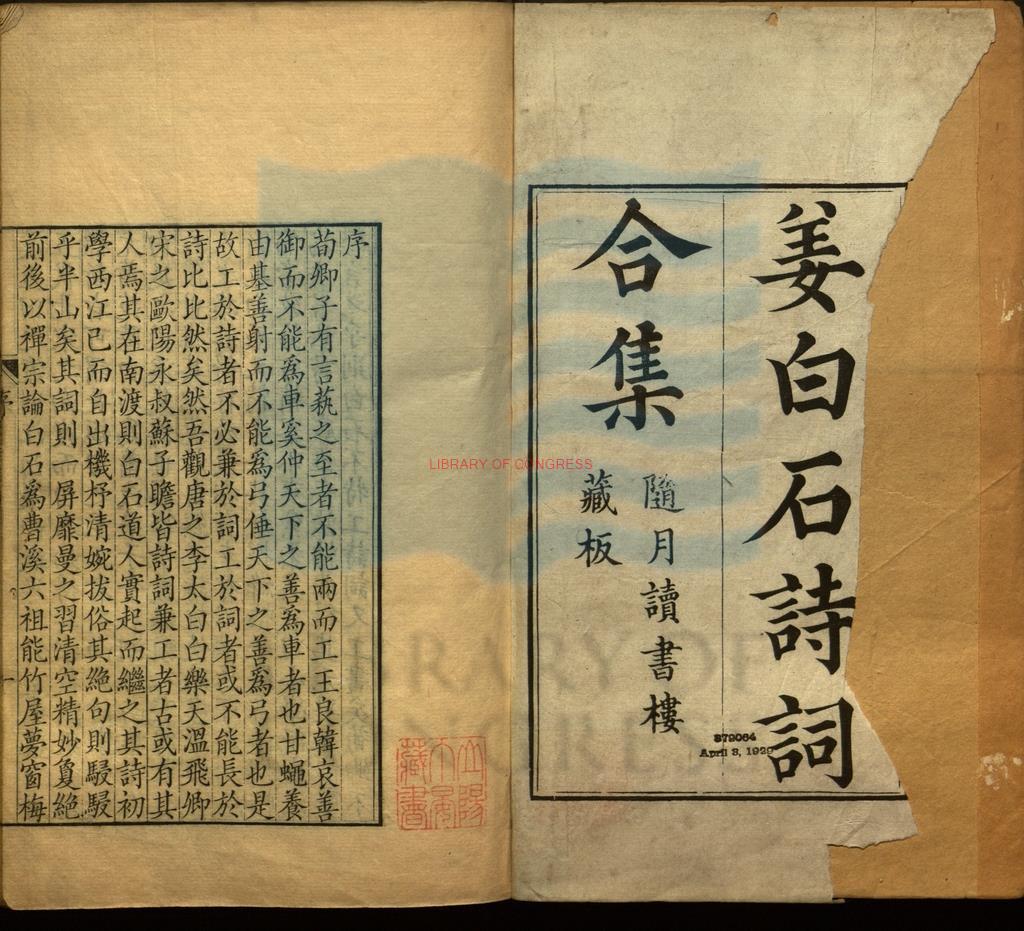 姜白石詩詞
合集
隨月讀書樓
藏板
379064
April 3, 1929
LIBRARY OF CONGRESS
序
荀卿子有言蓺之至者不能兩而工王良韓哀善
御而不能爲車奚仲天下之善爲車者也甘蠅養
由基善射而不能爲弓倕天下之善爲弓者也是
故工於詩者不必兼於詞工於詞者或不能長於
詩比比然矣然吾觀唐之李太白白樂天溫飛卿
宋之歐陽永叔蘇子瞻皆詩詞兼工者古或有其
人焉其在南渡則白石道人實起而繼之其詩初
學西江已而自出機杼清婉拔俗其絕句則駸駸
乎半山矣其詞則一屏靡曼之習清空精妙敻絕
前後以禪宗論白石爲曹溪六祖能竹屋夢窗梅
序
一
藏書